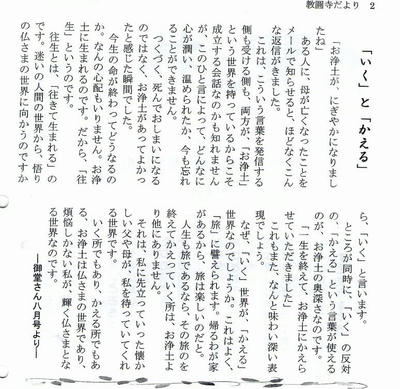 教圓寺だより 2
「いく」と「かえる」
「お浄土が、にぎやかになりまし
たね」
ある人に、母が亡くなったことを
メールで知らせると、ほどなくこん
な返信がきました。
これは、こういう言葉を発信する
側も受ける側も、両方が、「お浄土」
という世界を持っているからこそ
成立する会話なのかも知れません
が、このひと言によって、どんなに
心が潤い、温められたか、今も忘れ
ることができません。
つくづく、死んでおしまいになる
のではなく、お浄土があってよかっ
たと感じた瞬間でした。
今生の命が終わってどうなるの
か。なんの心配もいりません。お浄
土に生まれるのです。だから、「往
生」というのです。
往生とは、「往きて生まれる」の
です。迷いの人間の世界から、悟り
の仏さまの世界に向かうのですか
ら、「いく」と言います。
ところが同時に、「いく」の反対
の、「かえる」という言葉が使える
のが、お浄土の奥深さなのです。
「一生を終えて、お浄土にかえら
せていただきました」
これもまた、なんと味わい深い表
現でしょう。
なぜ、「いく」世界が、「かえる」
世界なのでしょうか。これはよく、
「旅」に譬えられます。帰るわが家
があるから、旅は楽しいのだと。
人生も旅であるなら、その旅のを
終えてかえっていく所は、お浄土よ
り他にありません。
それは、私に先立っていった懐か
しい父や母が、私を待っていてくれ
る世界です。
いく所でもあり、かえる所でもあ
る、お浄土は仏さまの世界であり、
煩悩しかない私が、輝く仏さまとな
る世界なのです。
――御堂さん八月号より――